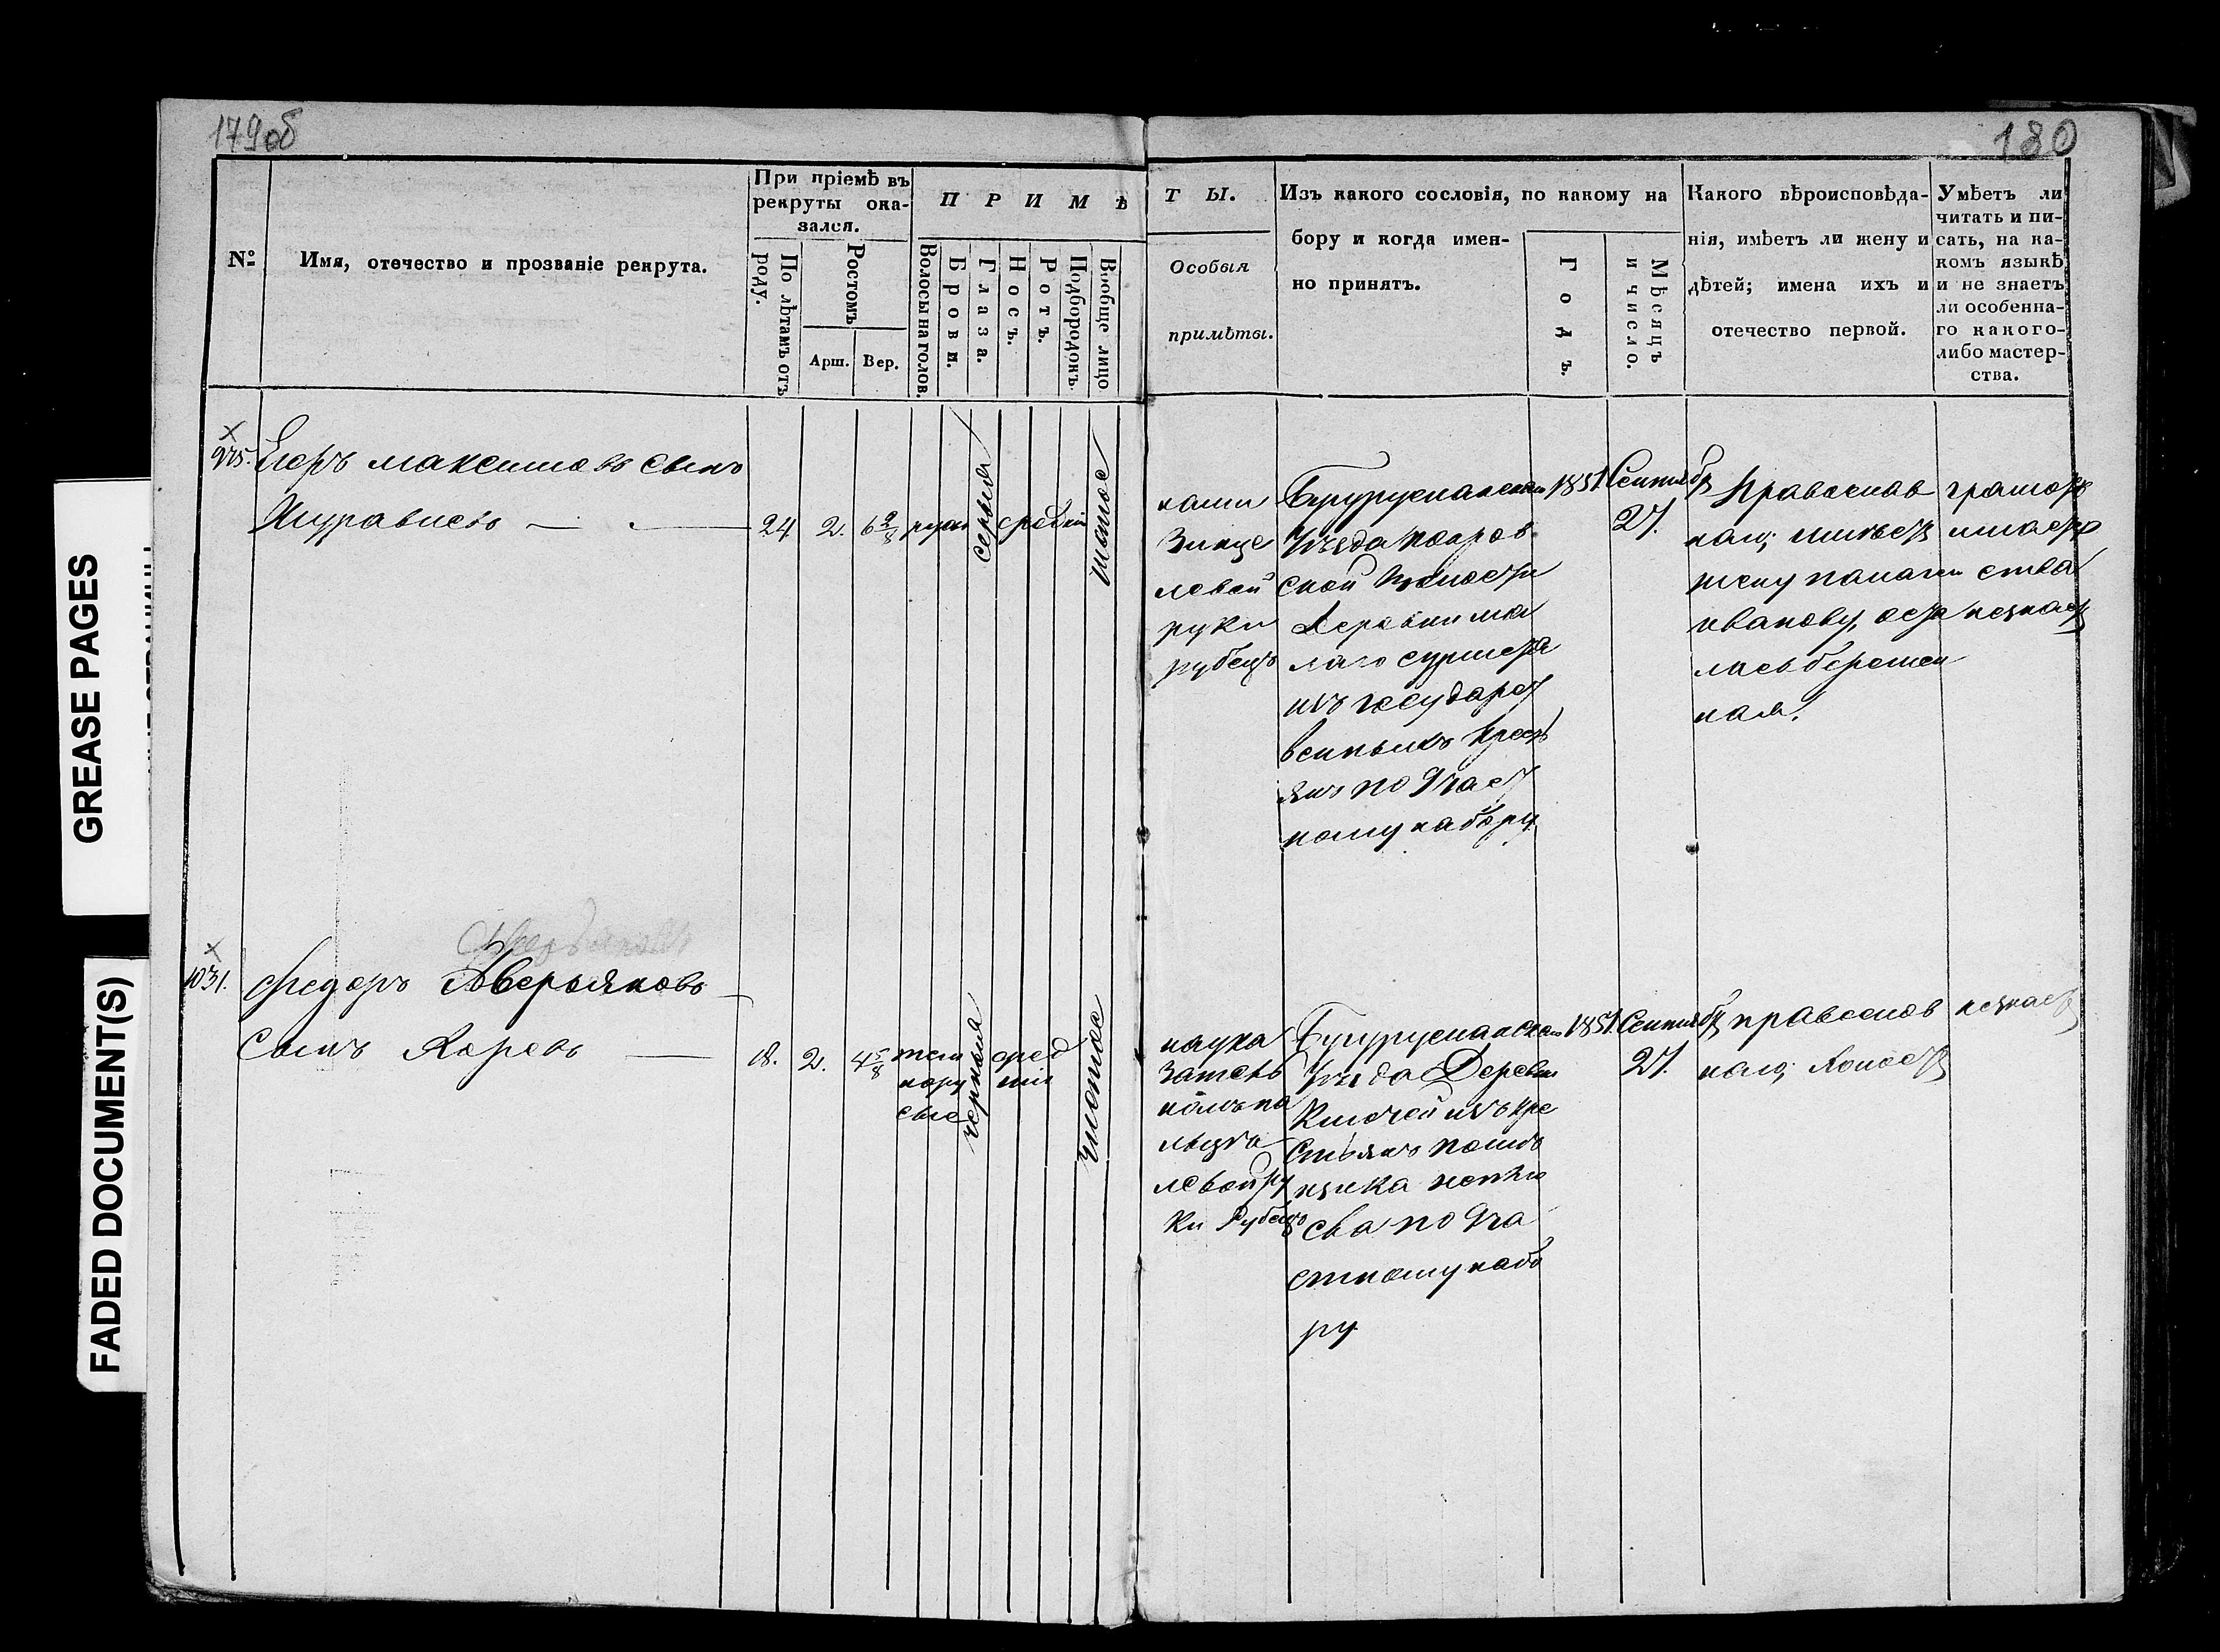 179об
180
GREASE PAGES
FADED DOCUMENT(S)
№
Имя, отечество и прозваніе рекрута.
При пріемѣ въ
рекруты ока-
зался.
По лѣтамъ отъ
роду.
Ростомъ
Арш.
Вер.
ПРИМѢ
Волосы на голов.
Брови.
Глаза.
Носъ.
Ротъ.
Подбородокъ.
Вообще лицо
ТЫ.
Особыя
примѣты.
Изъ какого сословія, по какому на
бору и когда имен-
но принятъ.
Годъ.
Мѣсяцъ
и число.
Какого вѣроисповѣда-
нія, имѣетъ ли жену и
дѣтей; имена ихъ и
отечество первой.
Умѣетъ ли
читать и пи-
сать, на ка-
комъ языкѣ
и не знаетъ
ли особенна-
го какого-
либо мастер-
ства.
975. Егоръ Максимовъ сынъ
Журавлевъ
24
2.
6 2/8
русы
серыя
средній
чистое
на ми
зинце
левой
руки
рубецъ
Бугурусланскаго
Уезда Покров
ской Волости
Деревни Ма
лаго Сурмета
изъ государст
венныхъ крест
янъ по 9 част
ному набору
1851
Сентябр
27.
Православ
наго; имѣетъ
жену Палагею
Иванову, оста
лась беремен
ная.
грамоте
и мастер
ства
незнает
1031.
Федоръ Аверьяновъ
Сынъ Каревъ
18.
2.
4 5/8
тем
нору
сые
черныя
сред
ніи
чистое
на ука
зател
номъ па
льце
левой ру
ки Рубецъ
Бугурусланскаго
Уезда Деревни
Ключей изъ кре
стьянъ помѣ
щика
по 9 ча
стному наб
ру
1851.
Сентябр
27.
православ
наго; холост
незнает